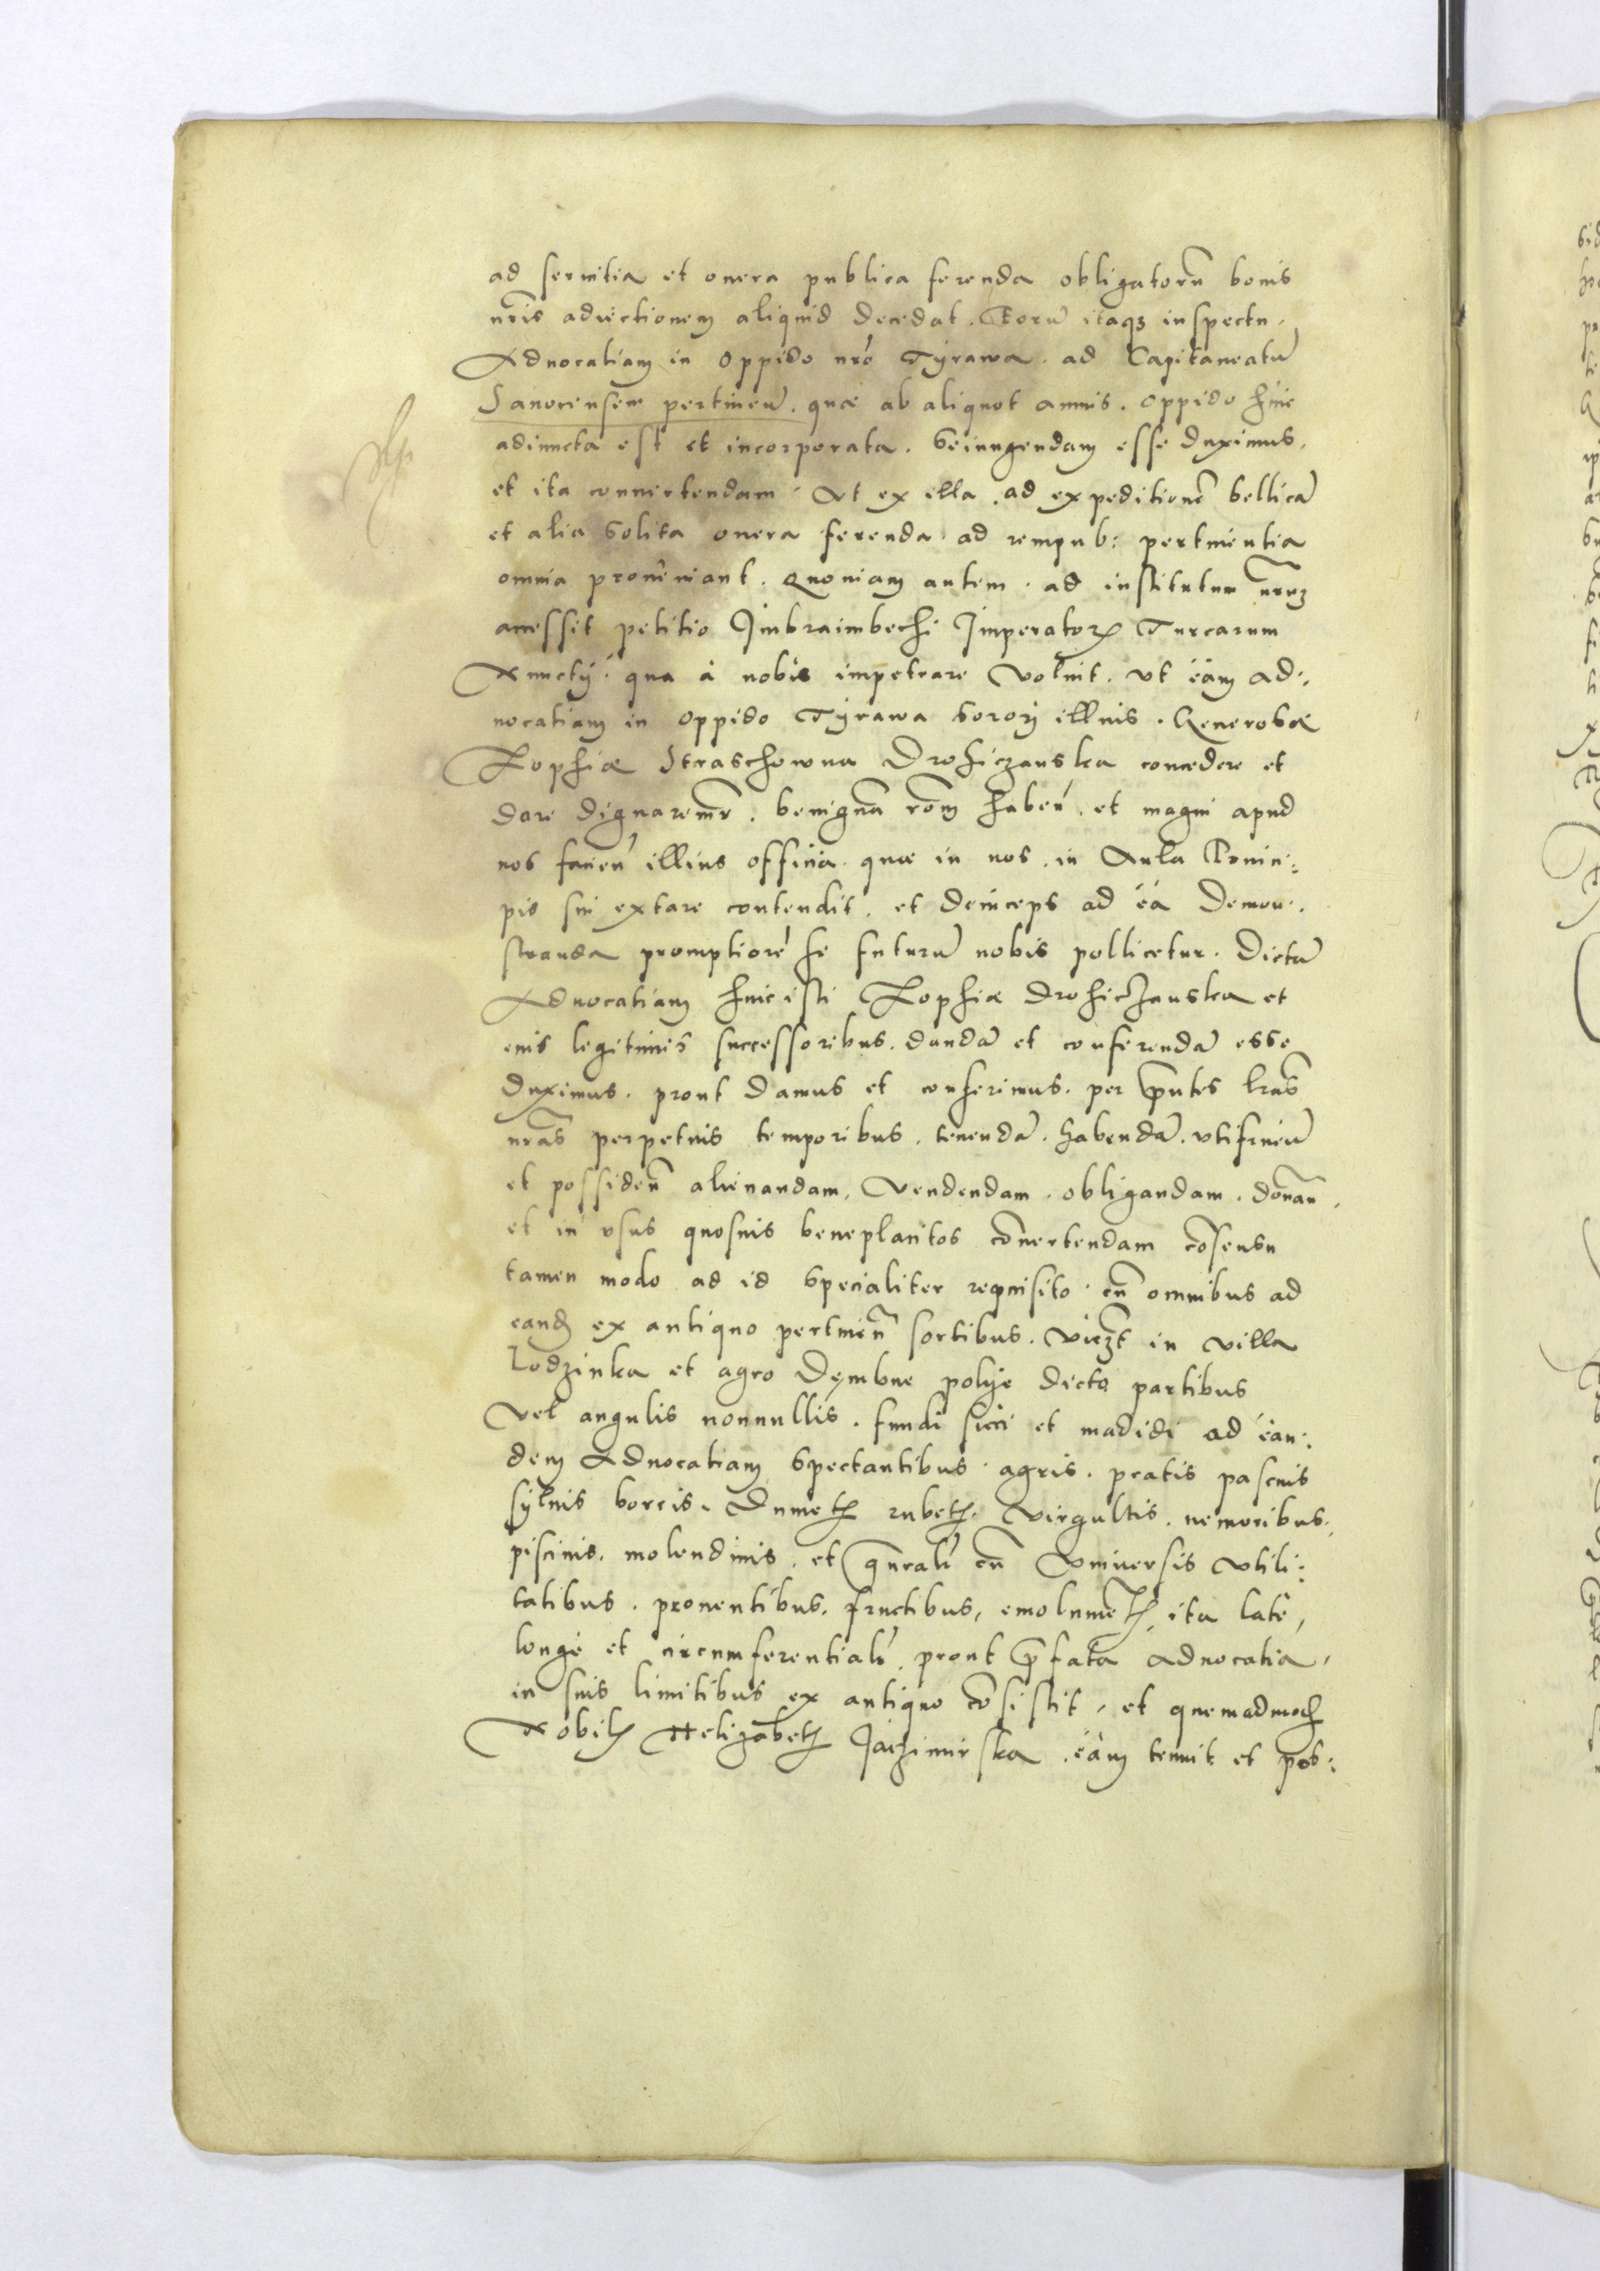 ad seruitia et onera publica ferenda obligatorũ bonis
nr̃is adiectionem aliquid decedat. Eorũ itaqꝫ inspectu,
Aduocatiam in Oppido nrõ Tÿrawa. ad Capitaneatũ
Sanocensem pertineñ. quæ ab aliquot annis. oppido huic
adiuncta est et incorporata. seiungendam esse duximus,
et ita conuertendam. Vt ex illa. ad expeditionẽ bellicã
et alia solita onera ferenda ad rempub: pertinentia
omnia proueniant. Quoniam autem. ad institutum nr̃uꝫ
accessit petitio Imbraimbechi Imperatorꝭ Turcarum
Nunctÿ. qua à nobis impetrare voluit. vt eãm ad:
uocatiam in oppido Tÿrawa sorori illius. Generosæ
Zophiæ Straschowna Drohiczanska concedere et
dare dignaremr̃. benignã rõm habeñ. et magni apud
nos facieñ illius officia quæ in nos. in Aula Princi:
pis sui extare contendit. et deinceps ad eã demon:
stranda promptiorẽ se futurũ nobis pollicetur. Dictã
Aduocatiam huic isti Zophiæ Drohiczanska et
eius legitimis successoribus. dandã et conferendã esse
duximus. prout damus et conferimus. per p̃ntes lr̃as
nr̃as perpetuis temporibus. tenendã. habendã. vtifrueñ
et possideñ alienandam, vendendam. obligandam. donañ,
et in vsus quosuis beneplacitos cõuertendam cõsensu
tamen modo ad id specialiter requisito. cũ omnibus ad
eandꝫ ex antiquo pertineñ sortibus. viczt in villa
Lodzinka et agro Dęmbne polije dicto partibus
vel angulis nonnullis. fundi sicci et madidi ad ean:
dem Aduocatiam spectantibus. agris. pratis pascuis
sÿluis borris. dumetꝭ rubetꝭ. virgultis. nemoribus.
piscinis. molendinis. et gñrali cũ vniuersis vtili:
tatibus. prouentibus. fructibus, emolumẽtꝭ, ita latè,
longè et circumferentialr̃. prout p̃fata aduocatia,
in suis limitibus ex antiquo cõsistit, et quemadmodꝫ
Nobilꝭ Helizabetꝭ Jaczimirska. eãm tenuit et pos: